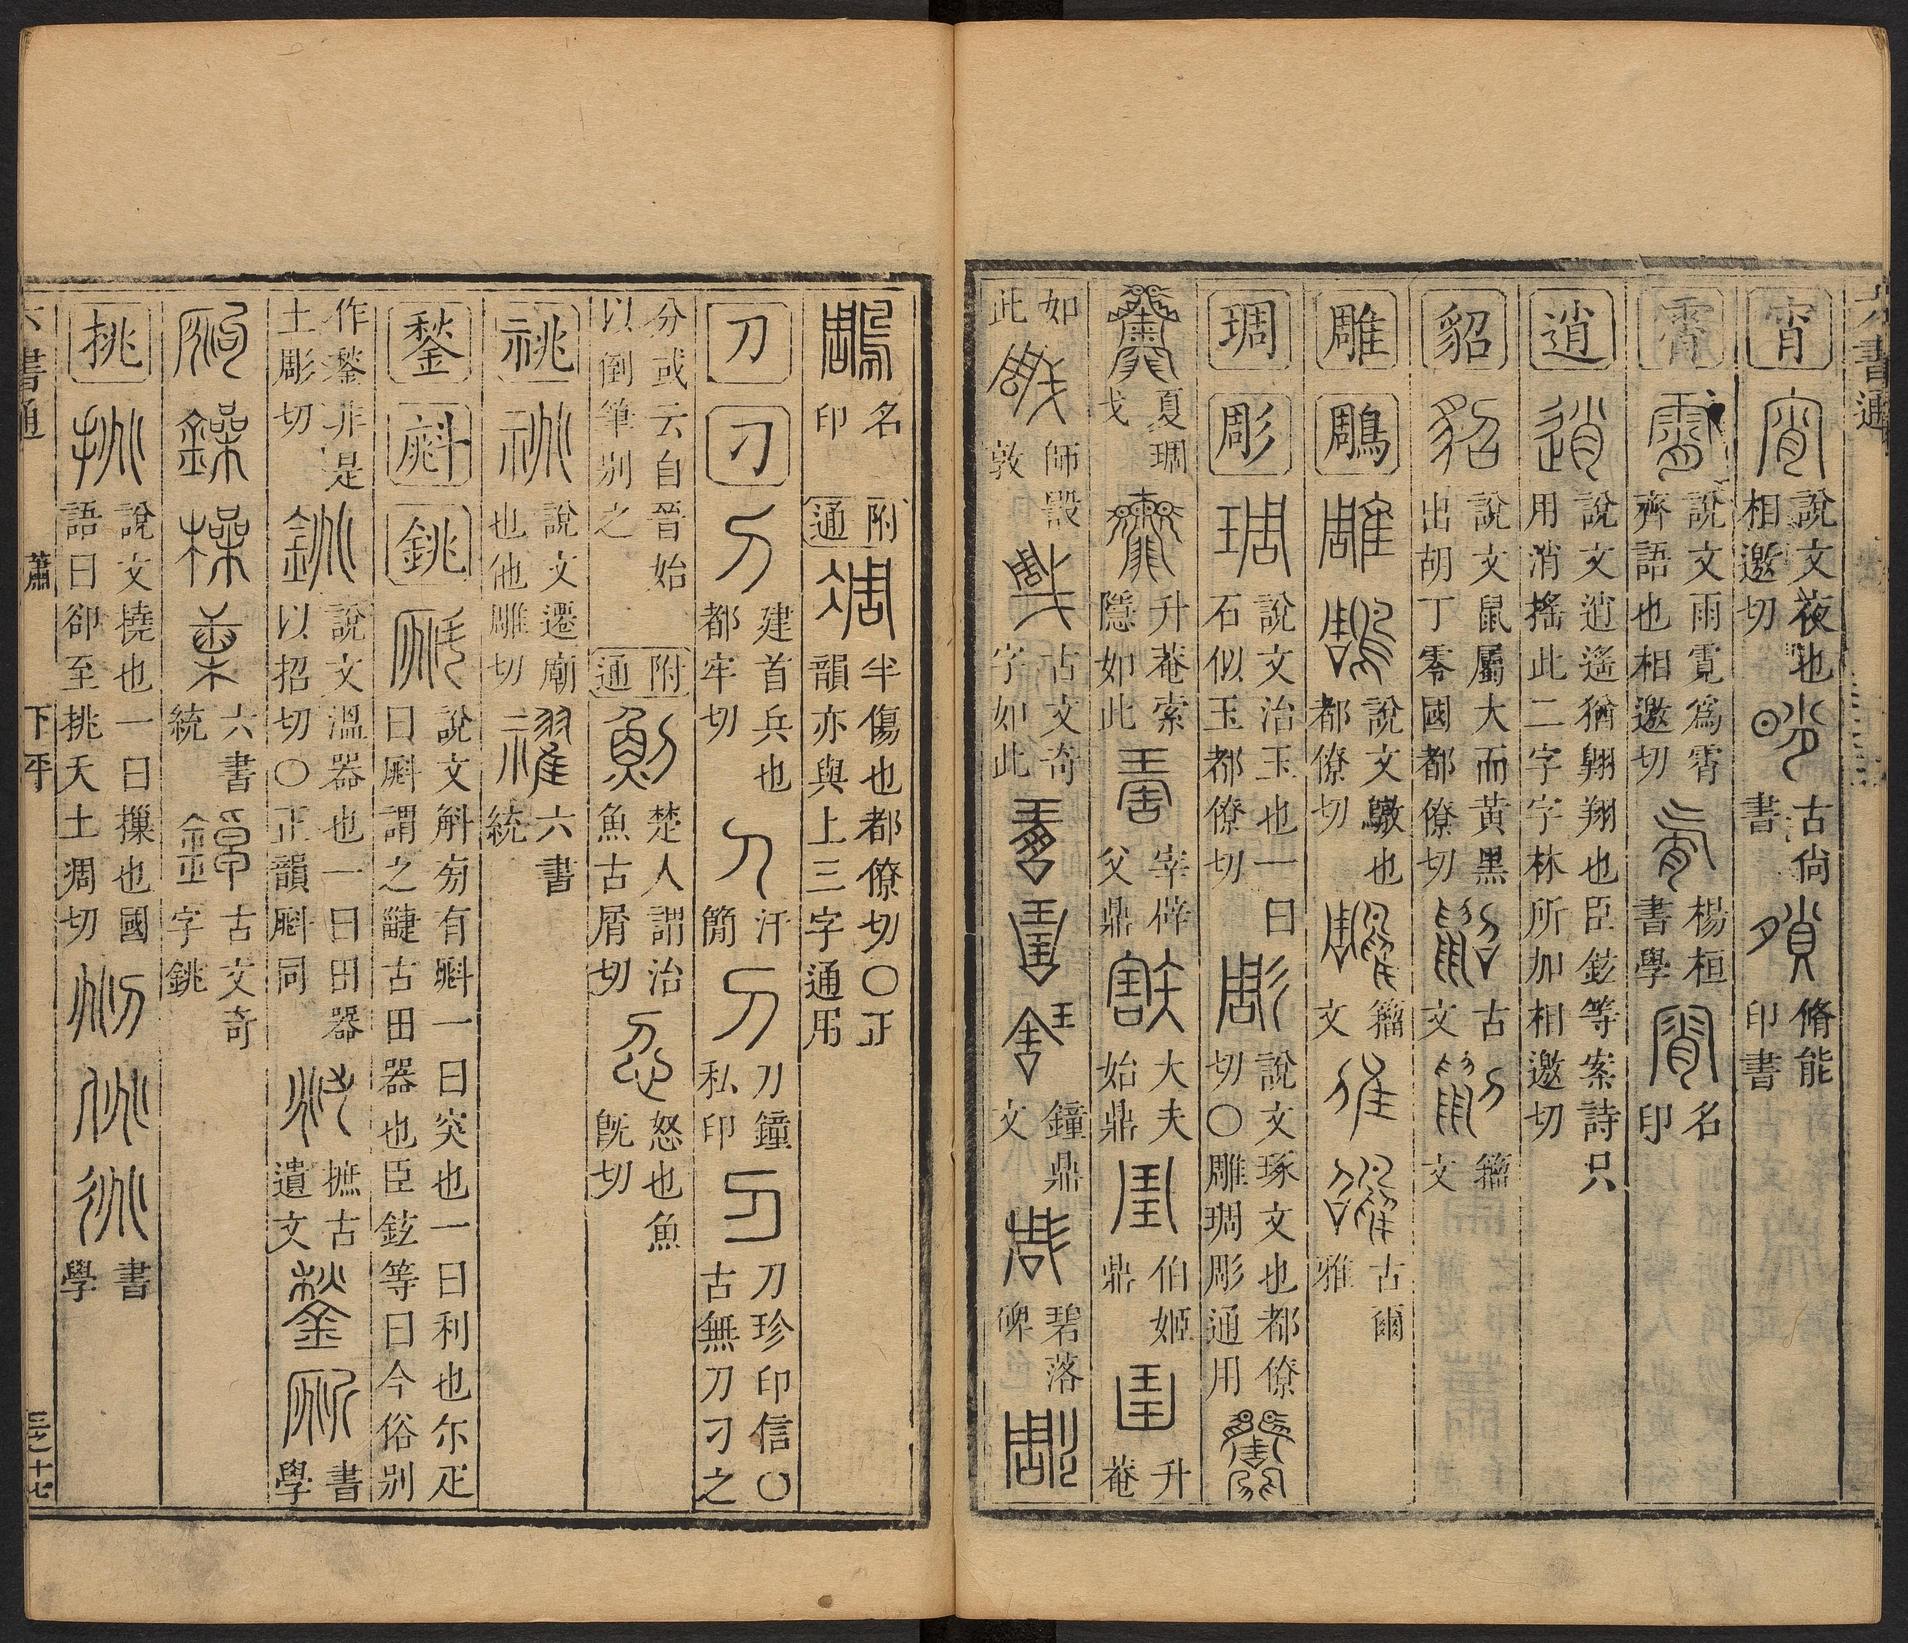 六書通
宵 說文夜也相邀切 古尙書 脩能印書
霄 說文雨霓爲霄齊語也相邀切 楊桓書學 名印
逍 說文逍遙猶翱翔也臣鉉等案詩只用消搖此二字字林所加相邀切
貂 說文鼠屬大而黃黑出胡丁零國都僚切 古文 籀文
雕 鵰 說文鷻也都僚切 籀文 古爾雅
琱 彫 說文治玉也一曰石似玉都僚切 說文琢文也都僚切〇雕琱彫通用
夏琱戈 升菴索隱如此 宰辟父鼎 大夫始鼎 伯姬鼎 升菴
如此 師𣪘敦 古文奇字如此 鐘鼎文 碧落碑
名印 附通 半傷也都僚切〇正韻亦與上三字通用
刀 刁 建首兵也都牢切 汗簡 刀鐘私印 刀珍印信〇古無刀刁之
分或云自晉始以倒筆別之 附通 楚人謂治魚古屑切 怒也魚旣切
祧 說文遷廟也他雕切 六書統
鍫 㪺 銚 說文斛旁有㪺一曰突也一曰利也尒疋曰㪺謂之疀古田器也臣鉉等曰今俗別
作鍫非是土彫切 說文溫器也一曰田器以招切〇正韻㪺同 摭古遺文 書學
六書統 古文奇字銚
挑 說文撓也一曰摷也國語曰卻至挑天土凋切 書學
六書通 蕭 下平 三之十七